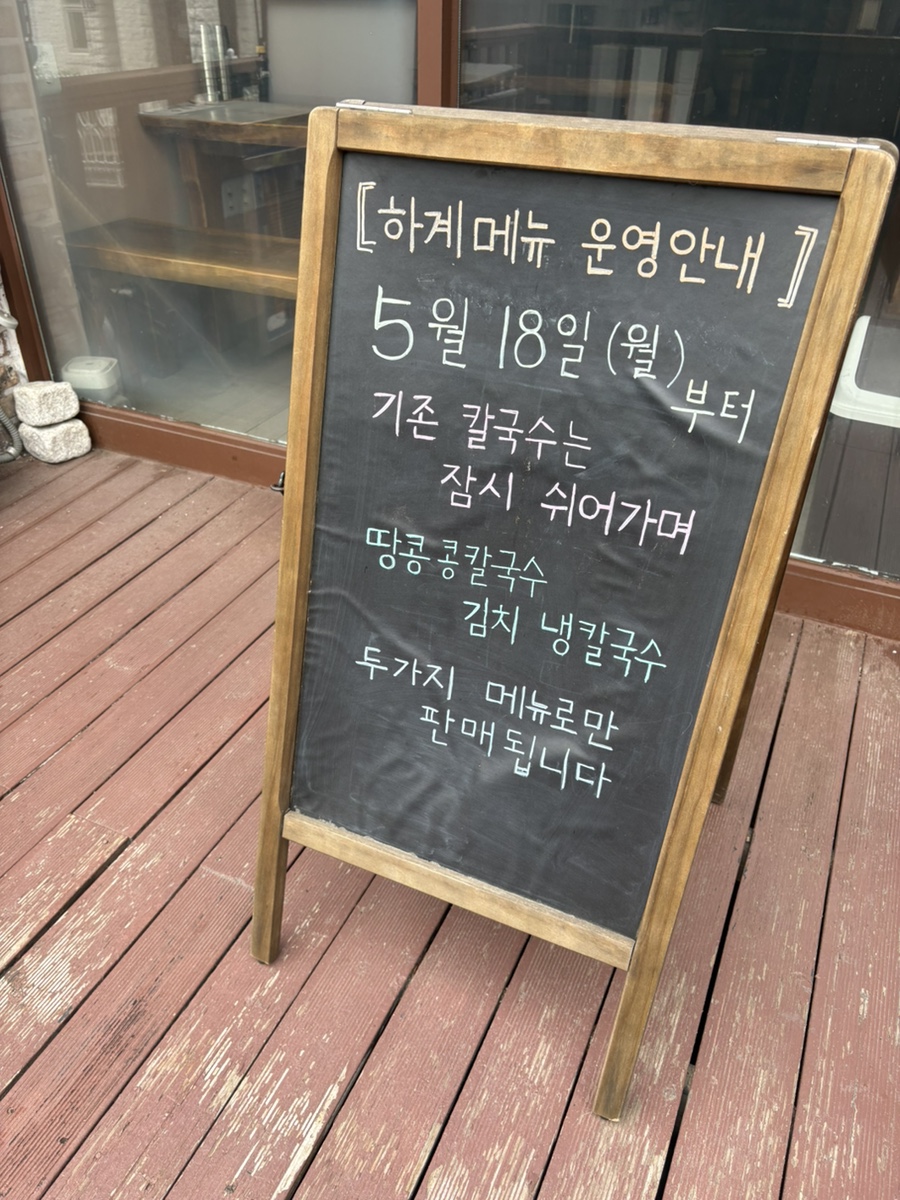 [하계메뉴 운영안내]
5월 18일(월)부터
기존 칼국수는
잠시 쉬어가며
땅콩콩칼국수
김치 냉칼국수
두가지 메뉴로만
판매됩니다